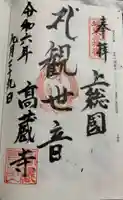 奉拝
上総国
観世音
高蔵寺
令和六年
九月二十九日